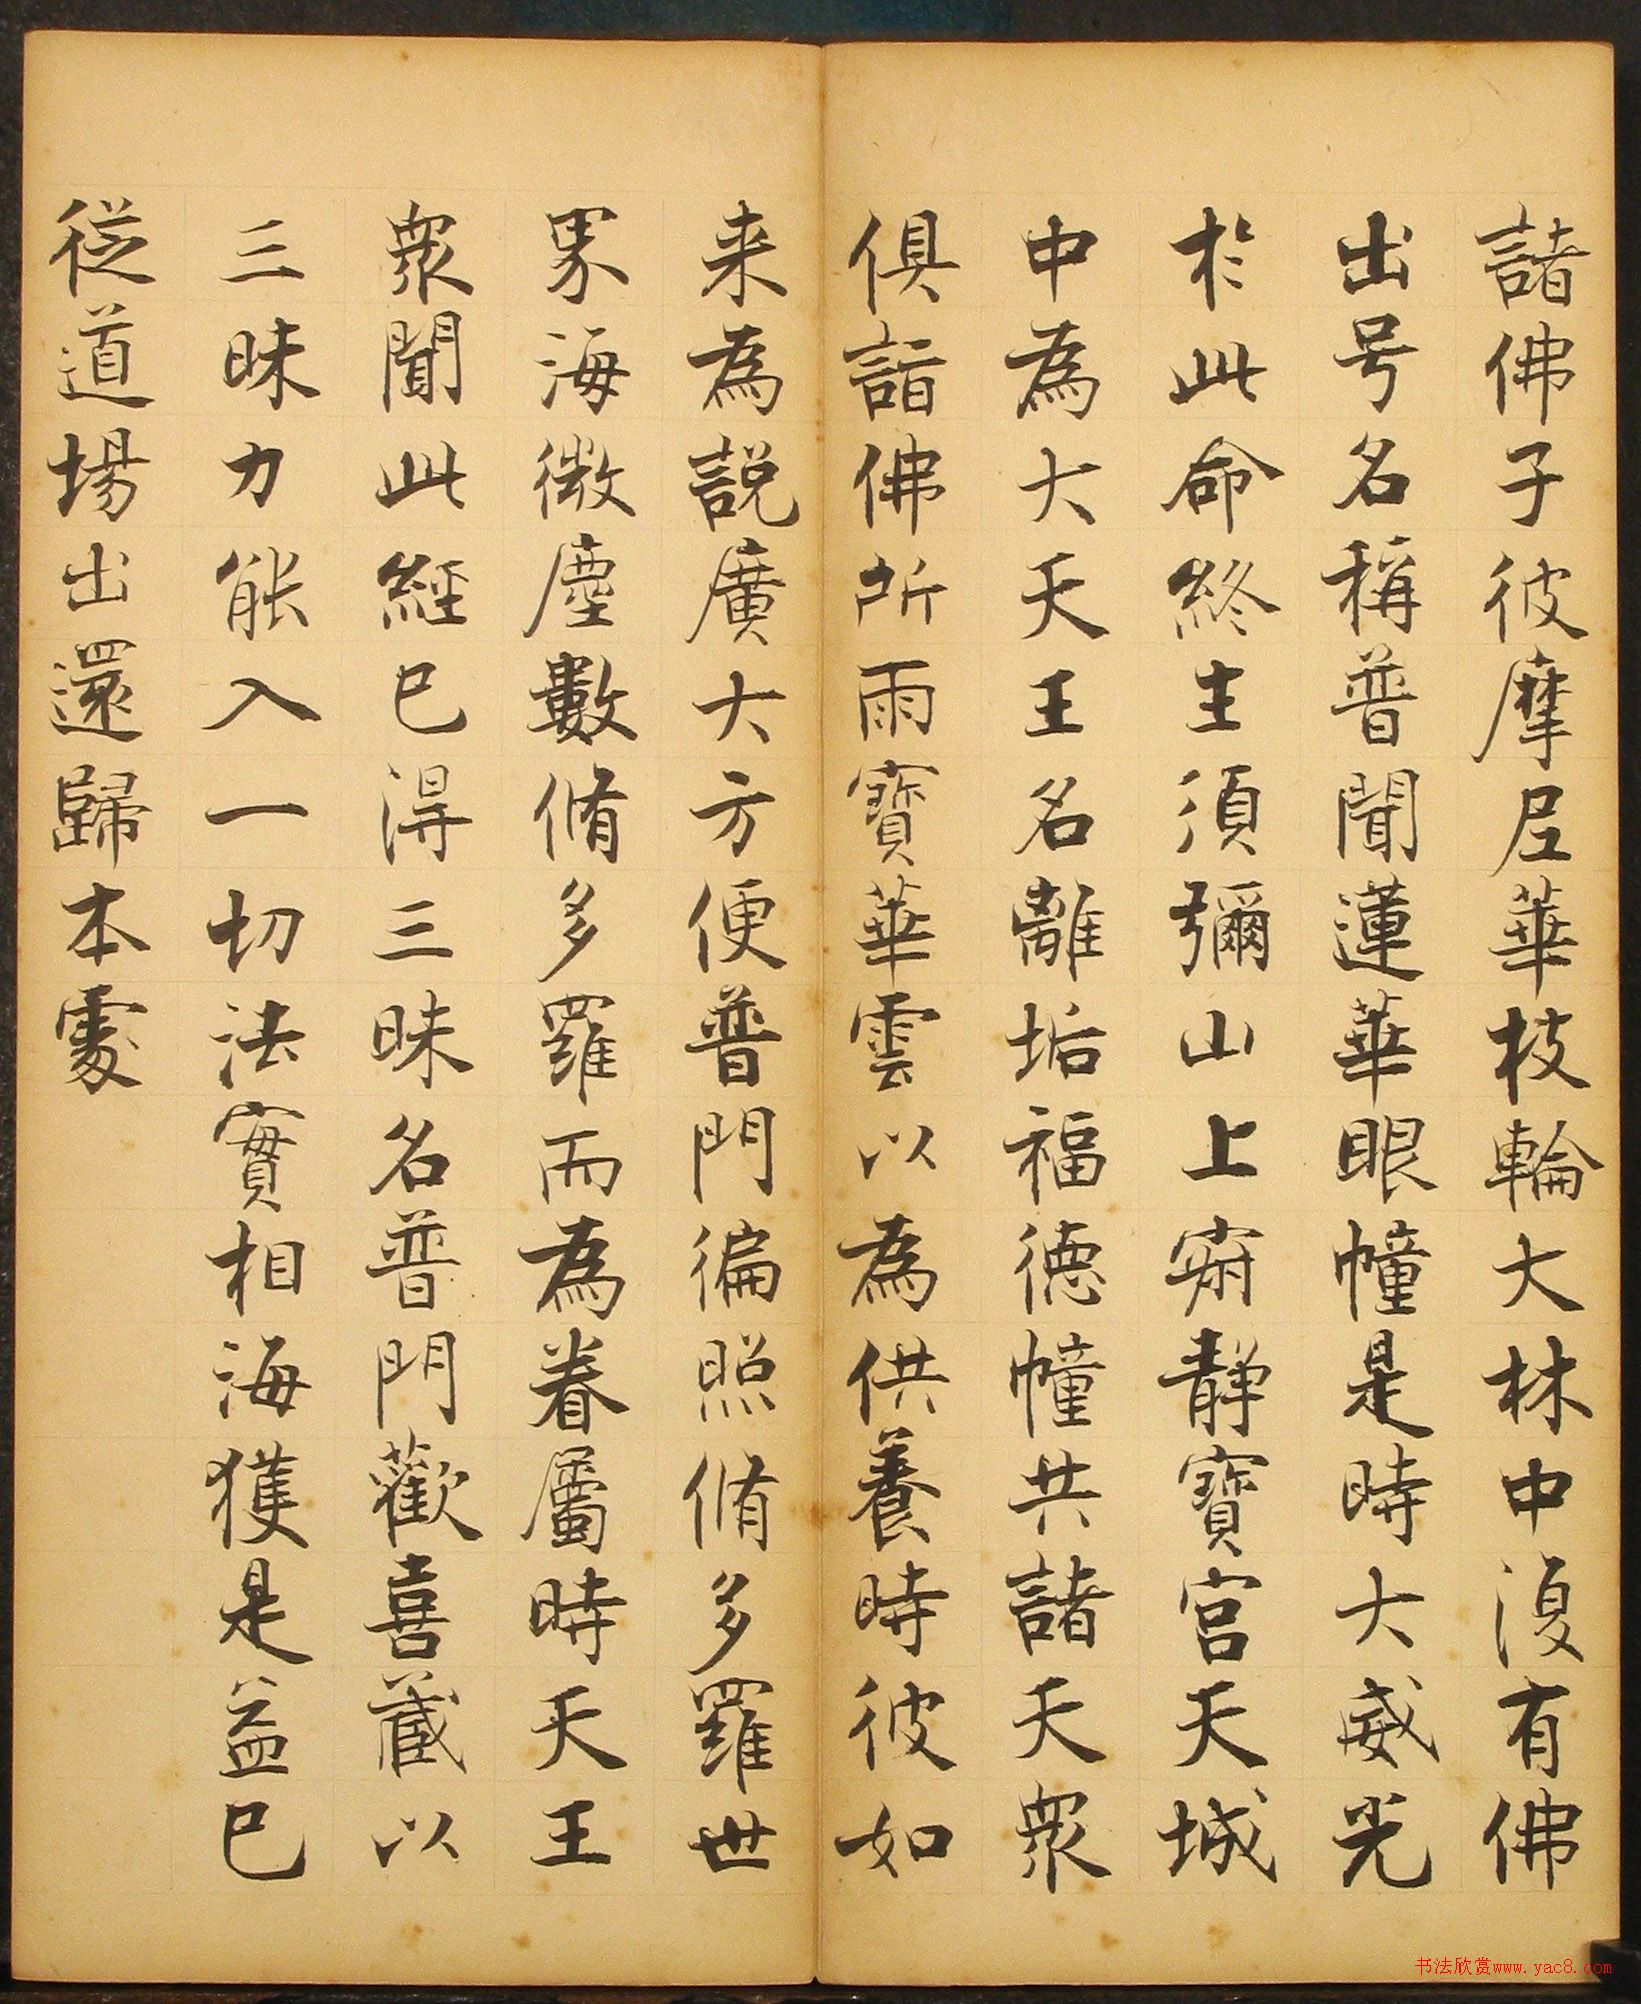 諸佛子彼摩尼華枝輪大林中復有佛
出号名稱普聞蓮華眼幢是時大威光
於此命終生須彌山上寂靜寶宮天城
中為大天王名離垢福德幢共諸天眾
俱詣佛所雨寶華雲以為供養時彼如
来為說廣大方便普門徧照脩多羅世
界海微塵數脩多羅而為眷屬時天王
眾聞此經已得三昧名普門歡喜藏以
三昧力能入一切法實相海獲是益已
從道場出還歸本處
书法欣赏www.yac8.com